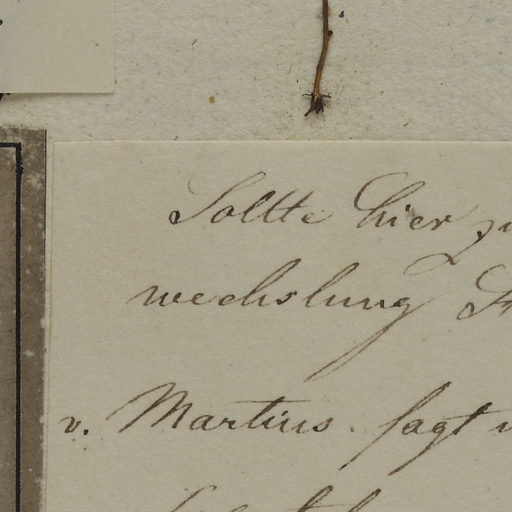 Sollte hier
wechslung
v. Martius sagt